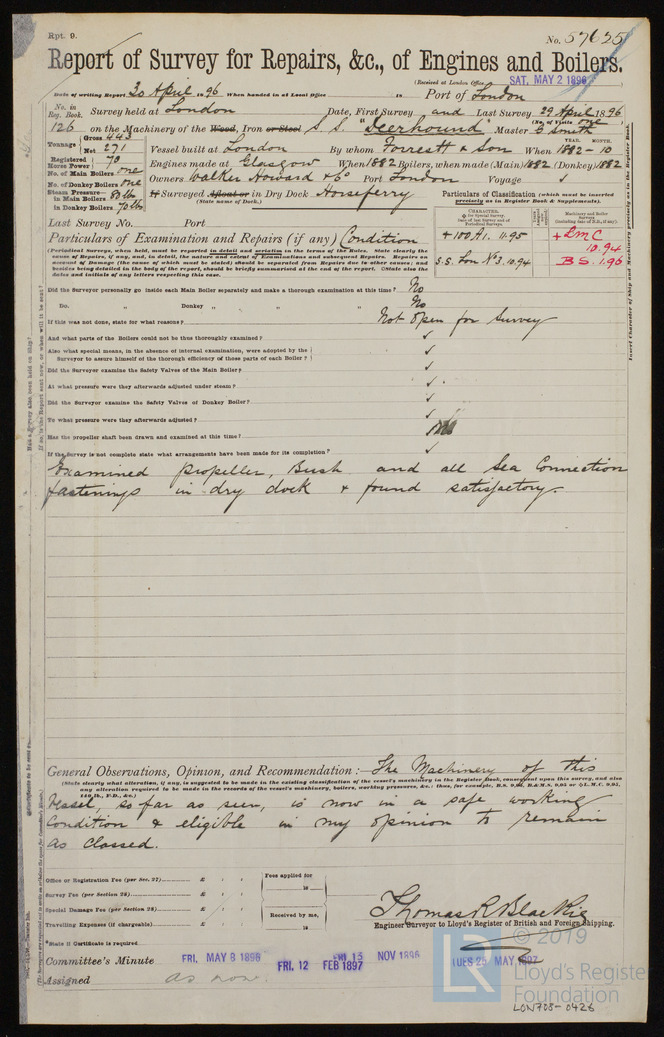 Rpt. 9.
No. 57625
Report of Survey for Repairs, &c., of Engines and Boilers.
(Received at London Office SAT. MAY 2 1896
Date of writing Report 30 April 1896 When handed in at Local Office 18 Port of London
No. in Reg. Book. Survey held at London Date, First Survey and Last Survey 29 April 1896
(No. of Visits one)
126 on the Machinery of the Wood, Iron or Steel S. S. "Deerhound" Master G Smith
Tonnage Gross 443 Net 271 Vessel built at London By whom Forrestt & Son When YEAR. MONTH. 1882-10
Registered Horse Power 70 Engines made at Glasgow When 1882 Boilers, when made (Main) 1882 (Donkey) 1882
No. of Main Boilers one Owners Walker Howard & Co Port London Voyage
No. of Donkey Boilers one
Steam Pressure in Main Boilers 80 lb If Surveyed Afloat or in Dry Dock Horseferry
in Donkey Boilers 70 lb (State name of Dock.)
Particulars of Classification (which must be inserted precisely as in Register Book & Supplements).
CHARACTER.
Machinery and Boiler Surveys
+100A1. 11.95
+LMC 10.94
S.S. Lon No3. 10.94
BS. 1.96
Last Survey No. Port
Particulars of Examination and Repairs (if any) Condition
(Periodical Surveys, when held, must be reported in detail and seriatim in the terms of the Rules. State clearly the
cause of Repairs, if any, and, in detail, the nature and extent of Examinations and subsequent Repairs. Repairs on
account of Damage (the cause of which must be stated) should be separated from Repairs due to other causes; and
besides being detailed in the body of the report, should be briefly summarised at the end of the report. State also the
dates and initials of any letters respecting this case.
Did the Surveyor personally go inside each Main Boiler separately and make a thorough examination at this time? No
Do. " Donkey " " " No
If this was not done, state for what reasons? Not open for Survey
And what parts of the Boilers could not be thus thoroughly examined?
Also what special means, in the absence of internal examination, were adopted by the
Surveyor to assure himself of the thorough efficiency of those parts of each Boiler?
Did the Surveyor examine the Safety Valves of the Main Boiler?
At what pressure were they afterwards adjusted under steam?
Did the Surveyor examine the Safety Valves of Donkey Boiler?
To what pressure were they afterwards adjusted?
Has the propeller shaft been drawn and examined at this time?
If the Survey is not complete state what arrangements have been made for its completion?
Examined propeller, Bush and all Sea Connection
fastenings in dry dock & found satisfactory.
General Observations, Opinion, and Recommendation:— The Machinery of this
(State clearly what alteration, if any, is suggested to be made in the existing classification of the vessel's machinery in the Register Book, consequent upon this survey, and also
any alteration required to be made in the records of the vessel's machinery, boilers, working pressures, &c.: thus, for example, B.S. 9,95, B.&M.S. 9,95 or +L.M.C. 9,95,
140 lb., F.D., &c.)
Vessel, so far as seen, is now in a safe working
Condition & eligible in my opinion to remain
as classed.
Office or Registration Fee (per Sec. 27) £ : :
Fees applied for 18
Survey Fee (per Section 28) £ : :
Special Damage Fee (per Section 28) £ : :
Received by me, 18
Travelling Expenses (if chargeable) £ : :
Thomas R Blackie
Engineer Surveyor to Lloyd's Register of British and Foreign Shipping.
*State if Certificate is required
Committee's Minute FRI. MAY 8 1896 FRI. 12 FEB 1897 NOV 1896 TUES 25 MAY 1897
Assigned as now
© 2019
LR
Lloyd's Register
Foundation
LON708-0426